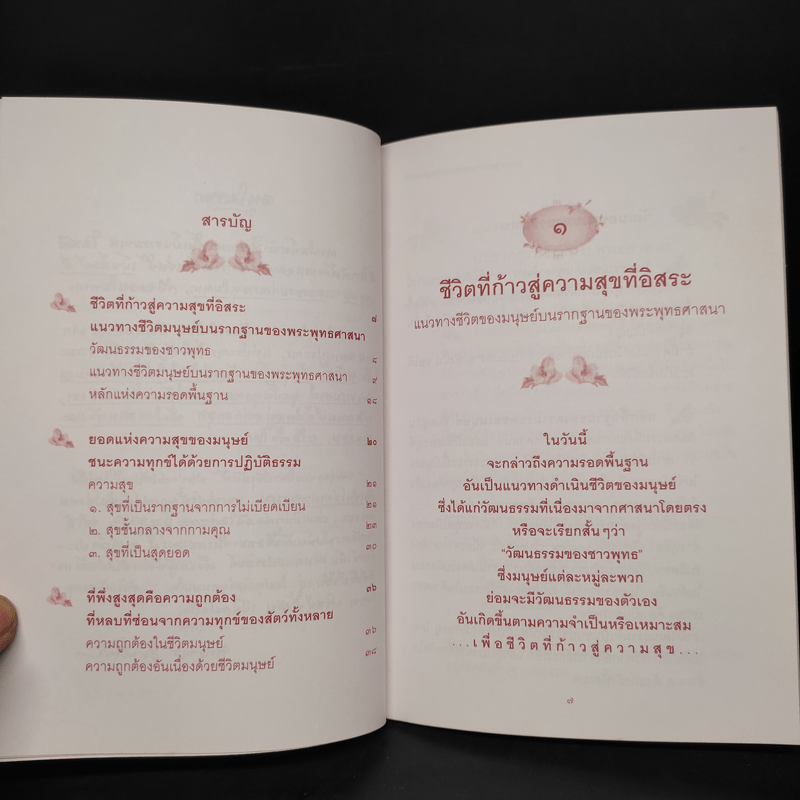 สารบัญ
ชีวิตที่ก้าวสู่ความสุขที่อิสระ ๗
แนวทางชีวิตมนุษย์บนรากฐานของพระพุทธศาสนา
วัฒนธรรมของชาวพุทธ ๘
แนวทางชีวิตมนุษย์บนรากฐานของพระพุทธศาสนา ๙
หลักแห่งความรอดพื้นฐาน ๑๘
ยอดแห่งความสุขของมนุษย์ ๒๐
ชนะความทุกข์ได้ด้วยการปฏิบัติธรรม
ความสุข ๒๑
๑. สุขที่เป็นรากฐานจากการไม่เบียดเบียน ๒๑
๒. สุขชั้นกลางจากกามคุณ ๒๓
๓. สุขที่เป็นสุดยอด ๓๐
ที่พึ่งสูงสุดคือความถูกต้อง ๓๖
ที่หลบที่ซ่อนจากความทุกข์ของสัตว์ทั้งหลาย
ความถูกต้องในชีวิตมนุษย์ ๓๖
ความถูกต้องอันเนื่องด้วยชีวิตมนุษย์ ๓๘
๑
ชีวิตที่ก้าวสู่ความสุขที่อิสระ
แนวทางชีวิตของมนุษย์บนรากฐานของพระพุทธศาสนา
ในวันนี้
จะกล่าวถึงความรอดพื้นฐาน
อันเป็นแนวทางดำเนินชีวิตของมนุษย์
ซึ่งได้แก่วัฒนธรรมที่เนื่องมาจากศาสนาโดยตรง
หรือจะเรียกสั้นๆว่า
"วัฒนธรรมของชาวพุทธ"
ซึ่งมนุษย์แต่ละหมู่ละพวก
ย่อมจะมีวัฒนธรรมของตัวเอง
อันเกิดขึ้นตามความจำเป็นหรือเหมาะสม
...เพื่อชีวิตที่ก้าวสู่ความสุข...
๗